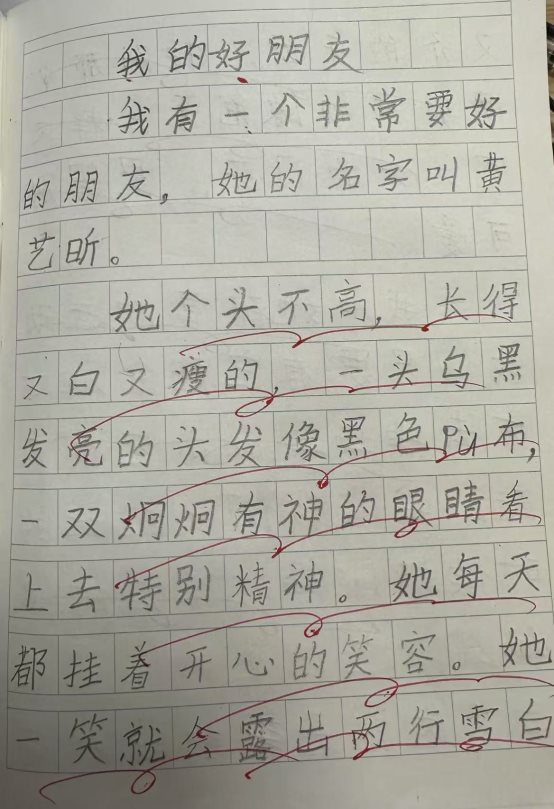 我的好朋友
我有一个非常要好
的朋友，她的名字叫黄
艺昕。
她个头不高，长得
又白又瘦的，一头乌黑
发亮的头发像黑色pù布，
一双炯炯有神的眼睛看
上去特别精神。她每天
都挂着开心的笑容。她
一笑就会露出两行雪白